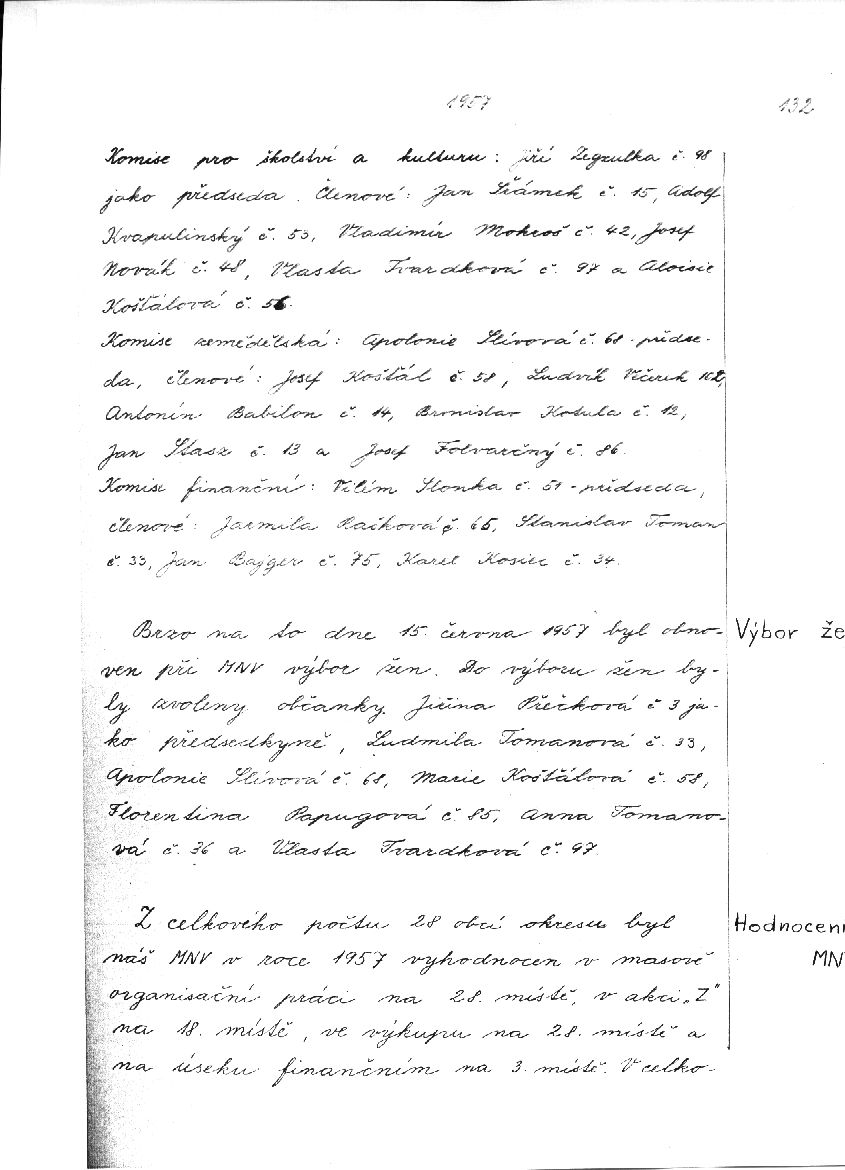 1957 132
Komise pro školství a kulturu: Jiří Zegzulka č. 98
jako předseda. Členové: Jan Šrámek č. 15, Adolf
Kvapulinský č. 53, Vladimír Mokroš č. 42, Josef
Novák č. 48, Vlasta Tvardková č. 97 a Aloisie
Košťálová č. 56.
Komise zemědělská: Apolonie Slívová č. 68 - předse-
da, členové: Josef Košťál č. 58, Ludvík Včerek 102,
Antonín Babilon č. 14, Bronislav Kotula č. 12,
Jan Stasz č. 13 a Josef Folvarčný č. 86.
Komise finanční: Vilém Slonka č. 51 - předseda,
členové: Jarmila Račková č. 65, Stanislav Toman
č. 33, Jan Bajger č. 75, Karel Kosiec č. 34.
Brzo na to dne 15. června 1957 byl obno- Výbor že
ven při MNV výbor žen. Do výboru žen by-
ly zvoleny občanky Jiřina Přečková č 3 ja-
ko předsedkyně, Ludmila Tomanová č. 33,
Apolonie Slívová č. 68, Marie Košťálová č. 58,
Florentina Papugová č. 85, Anna Tomano-
vá č. 36 a Vlasta Tvardková č. 97.
Z celkového počtu 28 obcí okresu byl Hodnocení
náš MNV v roce 1957 vyhodnocen v masově MN
organisační práci na 28. místě, v akci „Z"
na 18. místě, ve výkupu na 28. místě a
na úseku finančním na 3. místě. V celko-